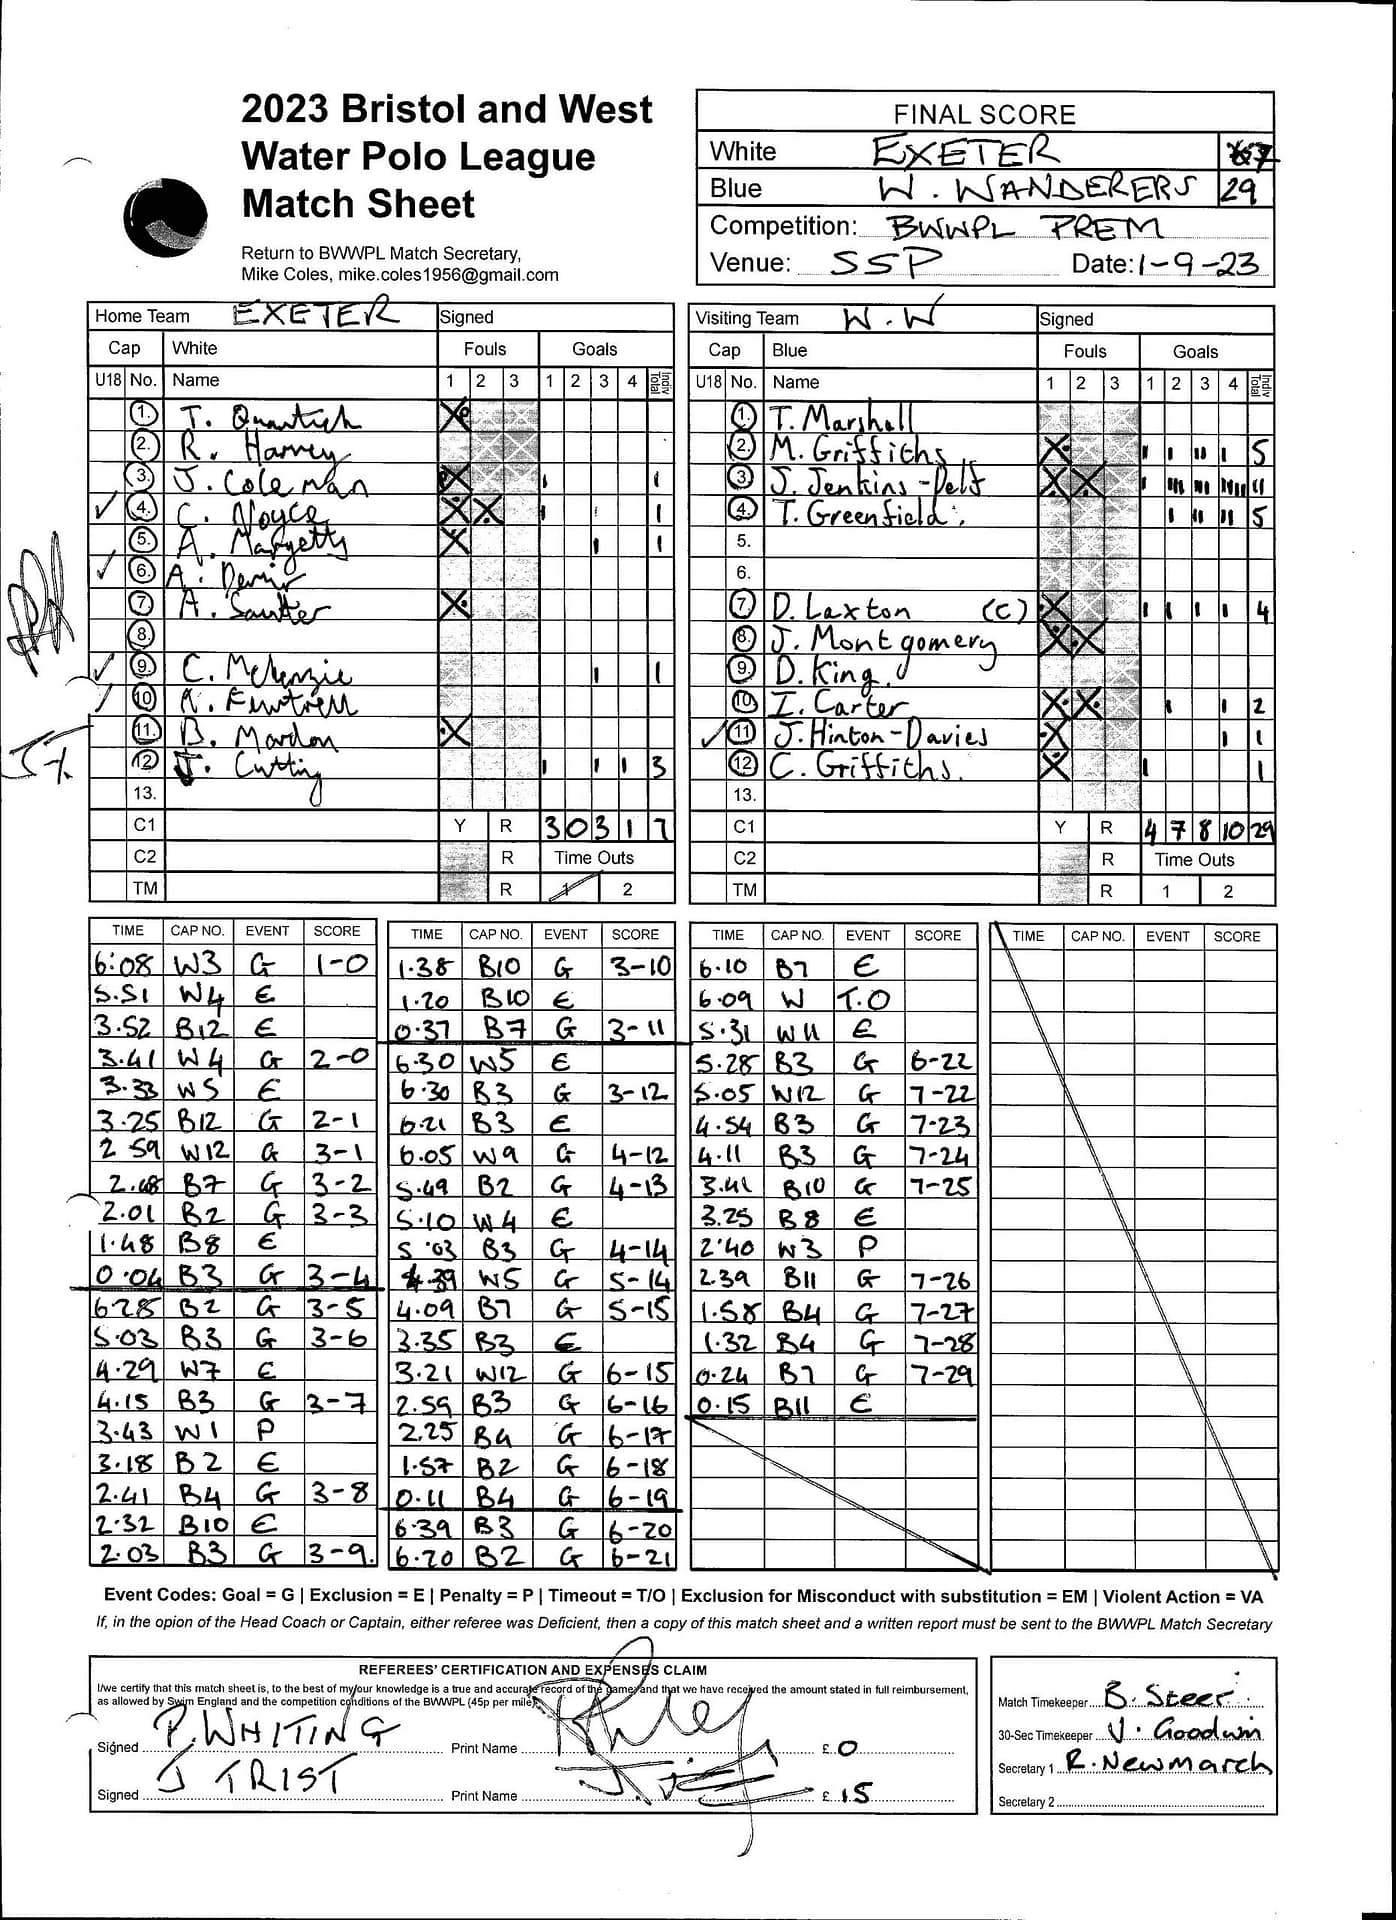 2023 Bristol and West
Water Polo League
Match Sheet
Return to BWWPL Match Secretary,
Mike Coles, mike.coles1956@gmail.com
FINAL SCORE
White EXETER 7
Blue W. WANDERERS 29
Competition: BWWPL PREM
Venue: SSP Date: 1-9-23
Home Team EXETER Signed
Cap White Fouls Goals
U18 No. Name 1 2 3 1 2 3 4 Indiv Total
1. T. Quantich
2. R. Harvey
3. J. Coleman 1
4. C. Noyce 1
5. A. Margetts 1
6. A. Demir
7. A. Sauter
8.
9. C. McKenzie 1
10
11. B. Mardon
12 J. Cutting 3
13.
C1 Y R 3 0 3 1 7
C2 R Time Outs
TM R 1 2
Visiting Team W.W Signed
Cap Blue Fouls Goals
U18 No. Name 1 2 3 1 2 3 4 Indiv Total
1. T. Marshall
2. M. Griffiths 5
3. J. Jenkins-Delf 11
4. T. Greenfield. 5
5.
6.
7. D. Laxton (C) 4
8. J. Montgomery
9. D. King.
10. I. Carter 2
11 J. Hinton-Davies 1
12 C. Griffiths. 1
13.
C1 Y R 4 7 8 10 29
C2 R Time Outs
TM R 1 2
TIME CAP NO. EVENT SCORE
6:08 W3 G 1-0
5.51 W4 E
3.52 B12 E
3.41 W4 G 2-0
3.33 W5 E
3.25 B12 G 2-1
2 59 W12 G 3-1
2.48 B7 G 3-2
2.01 B2 G 3-3
1.48 B8 E
0.04 B3 G 3-4
6.28 B2 G 3-5
5.03 B3 G 3-6
4.29 W7 E
4.15 B3 G 3-7
3.43 W1 P
3.18 B2 E
2.41 B4 G 3-8
2.32 B10 E
2.03 B3 G 3-9.
TIME CAP NO. EVENT SCORE
1.38 B10 G 3-10
1.20 B10 E
0.37 B7 G 3-11
6.30 W5 E
6.30 B3 G 3-12
6.21 B3 E
6.05 W9 G 4-12
5.49 B2 G 4-13
5.10 W4 E
5.03 B3 G 4-14
4.39 W5 G 5-14
4.09 B7 G 5-15
3.35 B3 E
3.21 W12 G 6-15
2.59 B3 G 6-16
2.25 B4 G 6-17
1.57 B2 G 6-18
0.11 B4 G 6-19
6.39 B3 G 6-20
6.20 B2 G 6-21
TIME CAP NO. EVENT SCORE
6.10 B7 E
6.09 W T.O
5.31 W11 E
5.28 B3 G 6-22
5.05 W12 G 7-22
4.54 B3 G 7-23
4.11 B3 G 7-24
3.41 B10 G 7-25
3.25 B8 E
2.40 W3 P
2.39 B11 G 7-26
1.58 B4 G 7-27
1.32 B4 G 7-28
0.24 B7 G 7-29
0.15 B11 E
TIME CAP NO. EVENT SCORE
Event Codes: Goal = G | Exclusion = E | Penalty = P | Timeout = T/O | Exclusion for Misconduct with substitution = EM | Violent Action = VA
If, in the opion of the Head Coach or Captain, either referee was Deficient, then a copy of this match sheet and a written report must be sent to the BWWPL Match Secretary
REFEREES' CERTIFICATION AND EXPENSES CLAIM
I/we certify that this match sheet is, to the best of my/our knowledge is a true and accurate record of the game and that we have received the amount stated in full reimbursement,
as allowed by Swim England and the competition conditions of the BWWPL (45p per mile).
Signed P. WHITING Print Name £ 0
Signed J TRIST Print Name £ 15
Match Timekeeper B. Steer.
30-Sec Timekeeper V. Goodwin
Secretary 1 R. Newmarch
Secretary 2